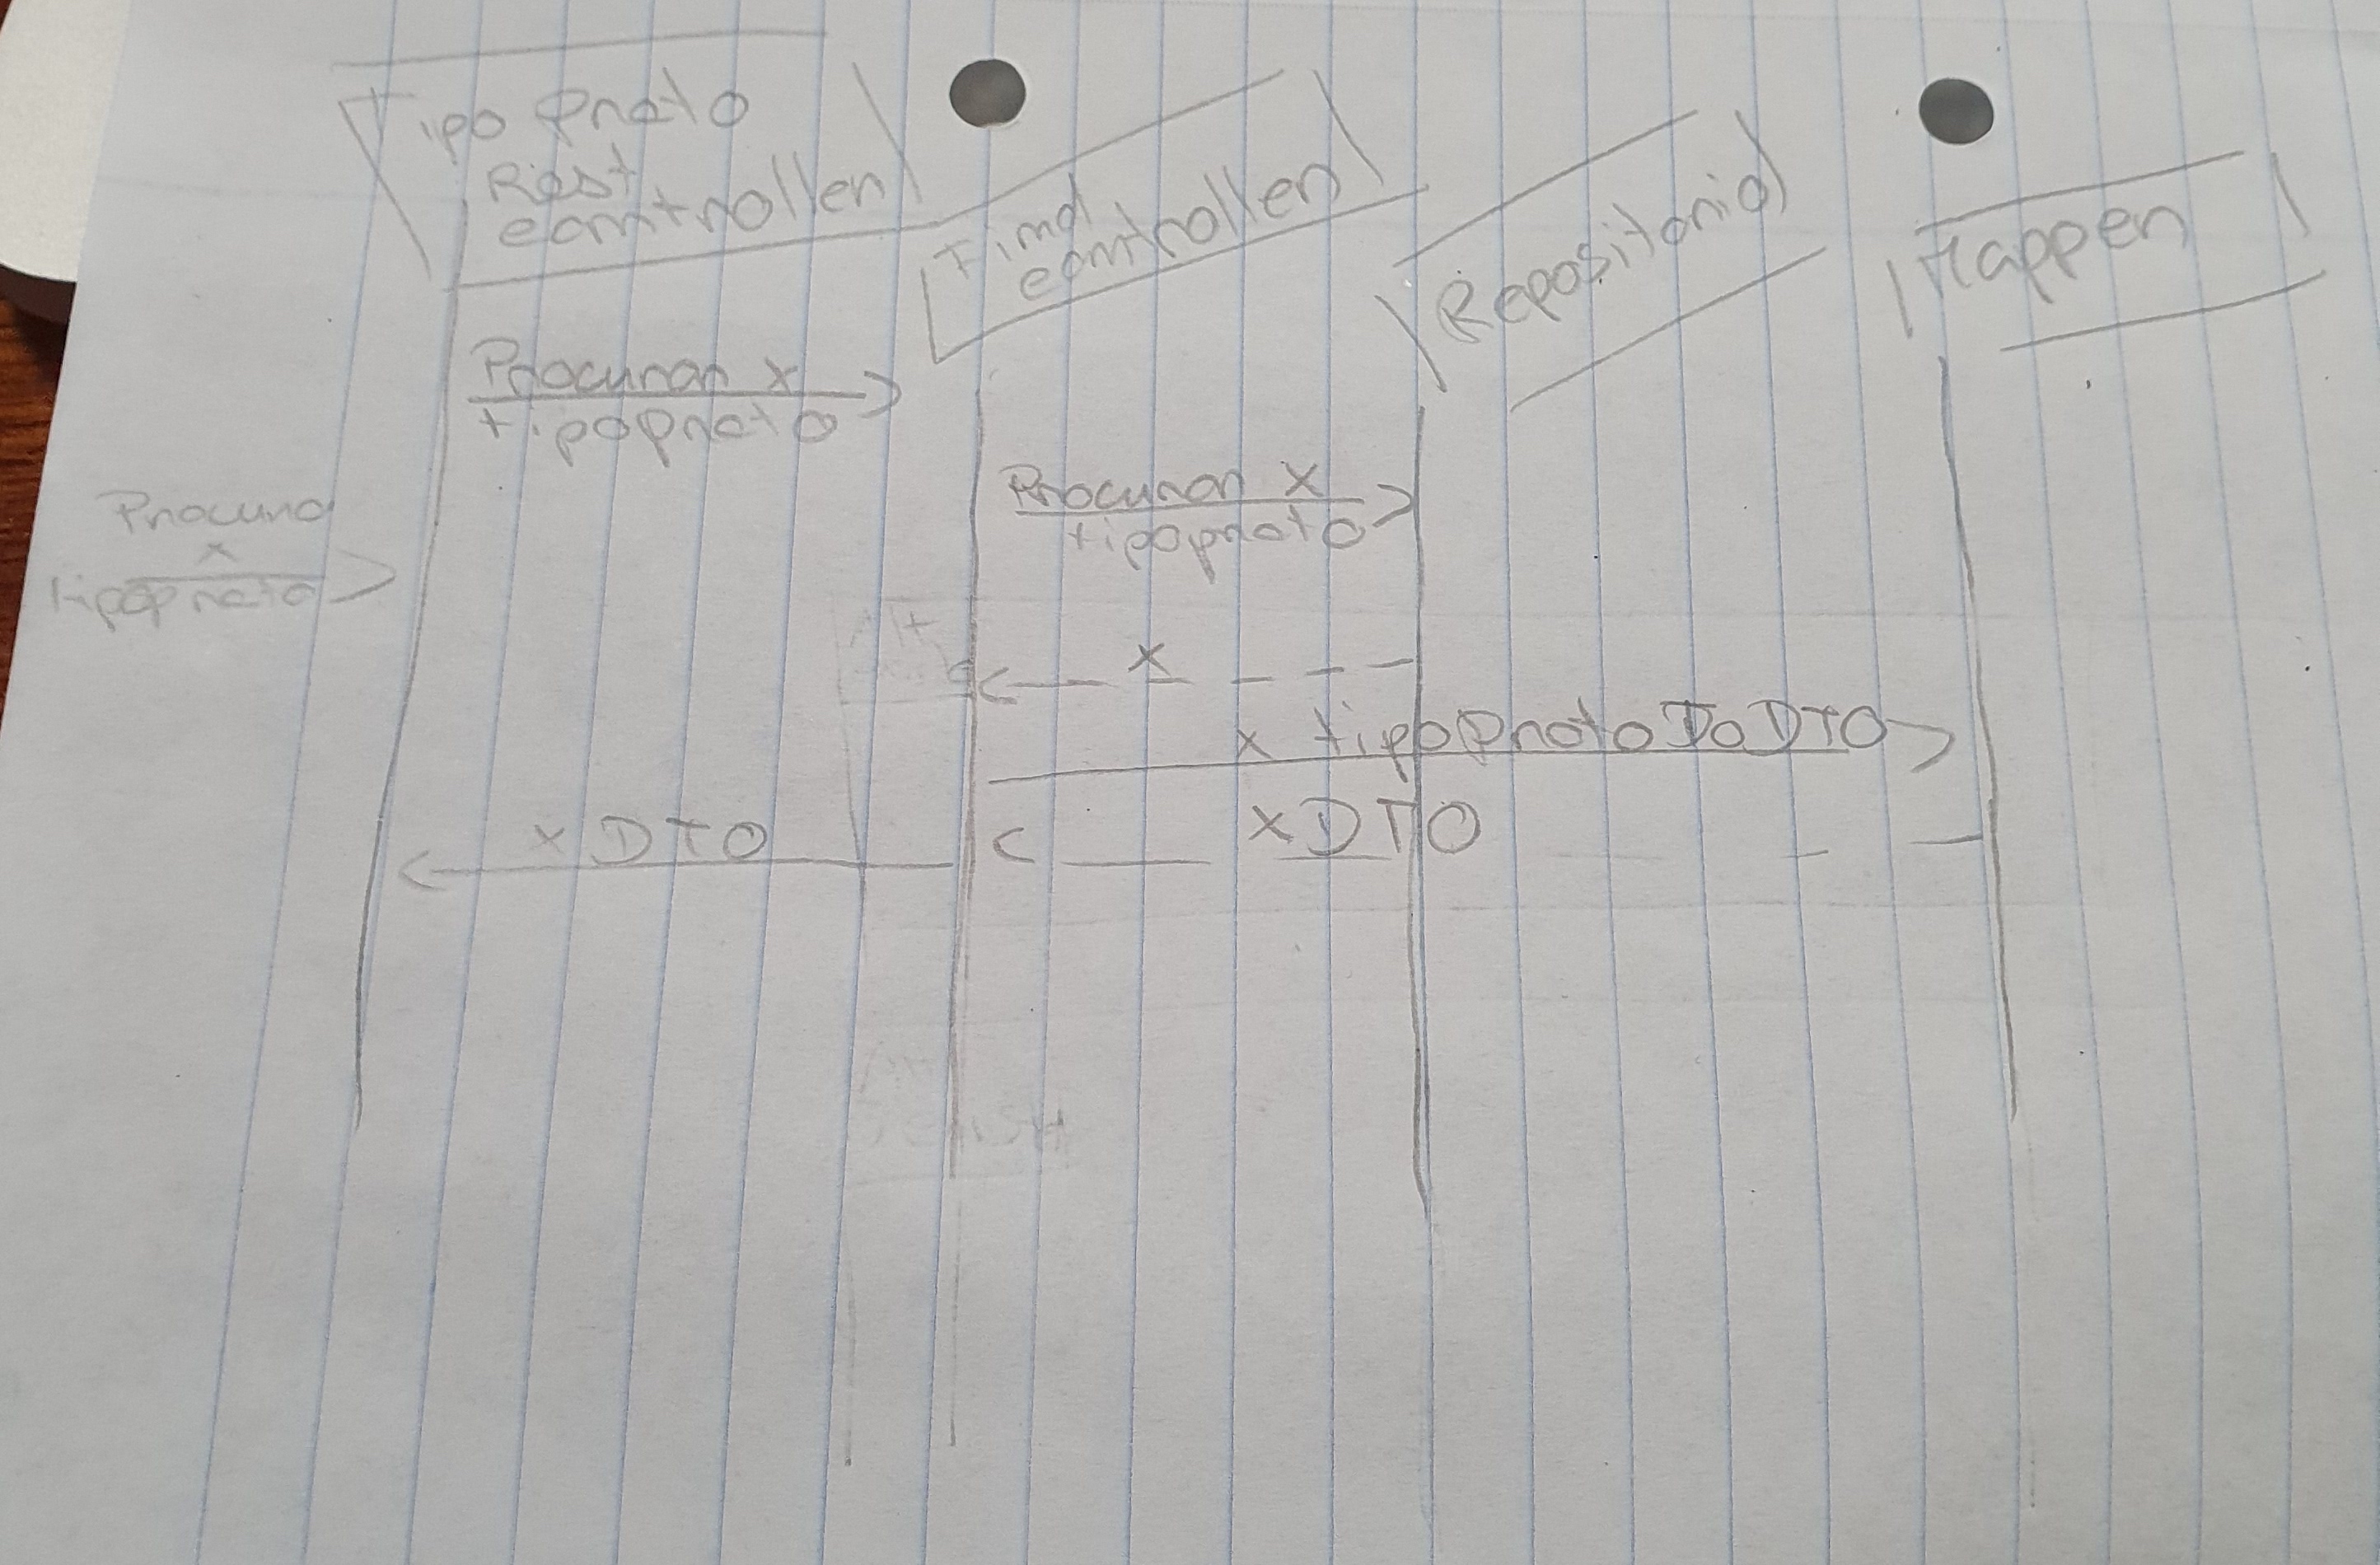 Tipo Prato
Rest
controller
Find
controller
Repositorio
Mapper
Procurar x
tipoprato
Procurar x
tipoprato
Procura
x
tipoprato
Alt
x
x tipoPratoToDTO
xDTO
xDTO